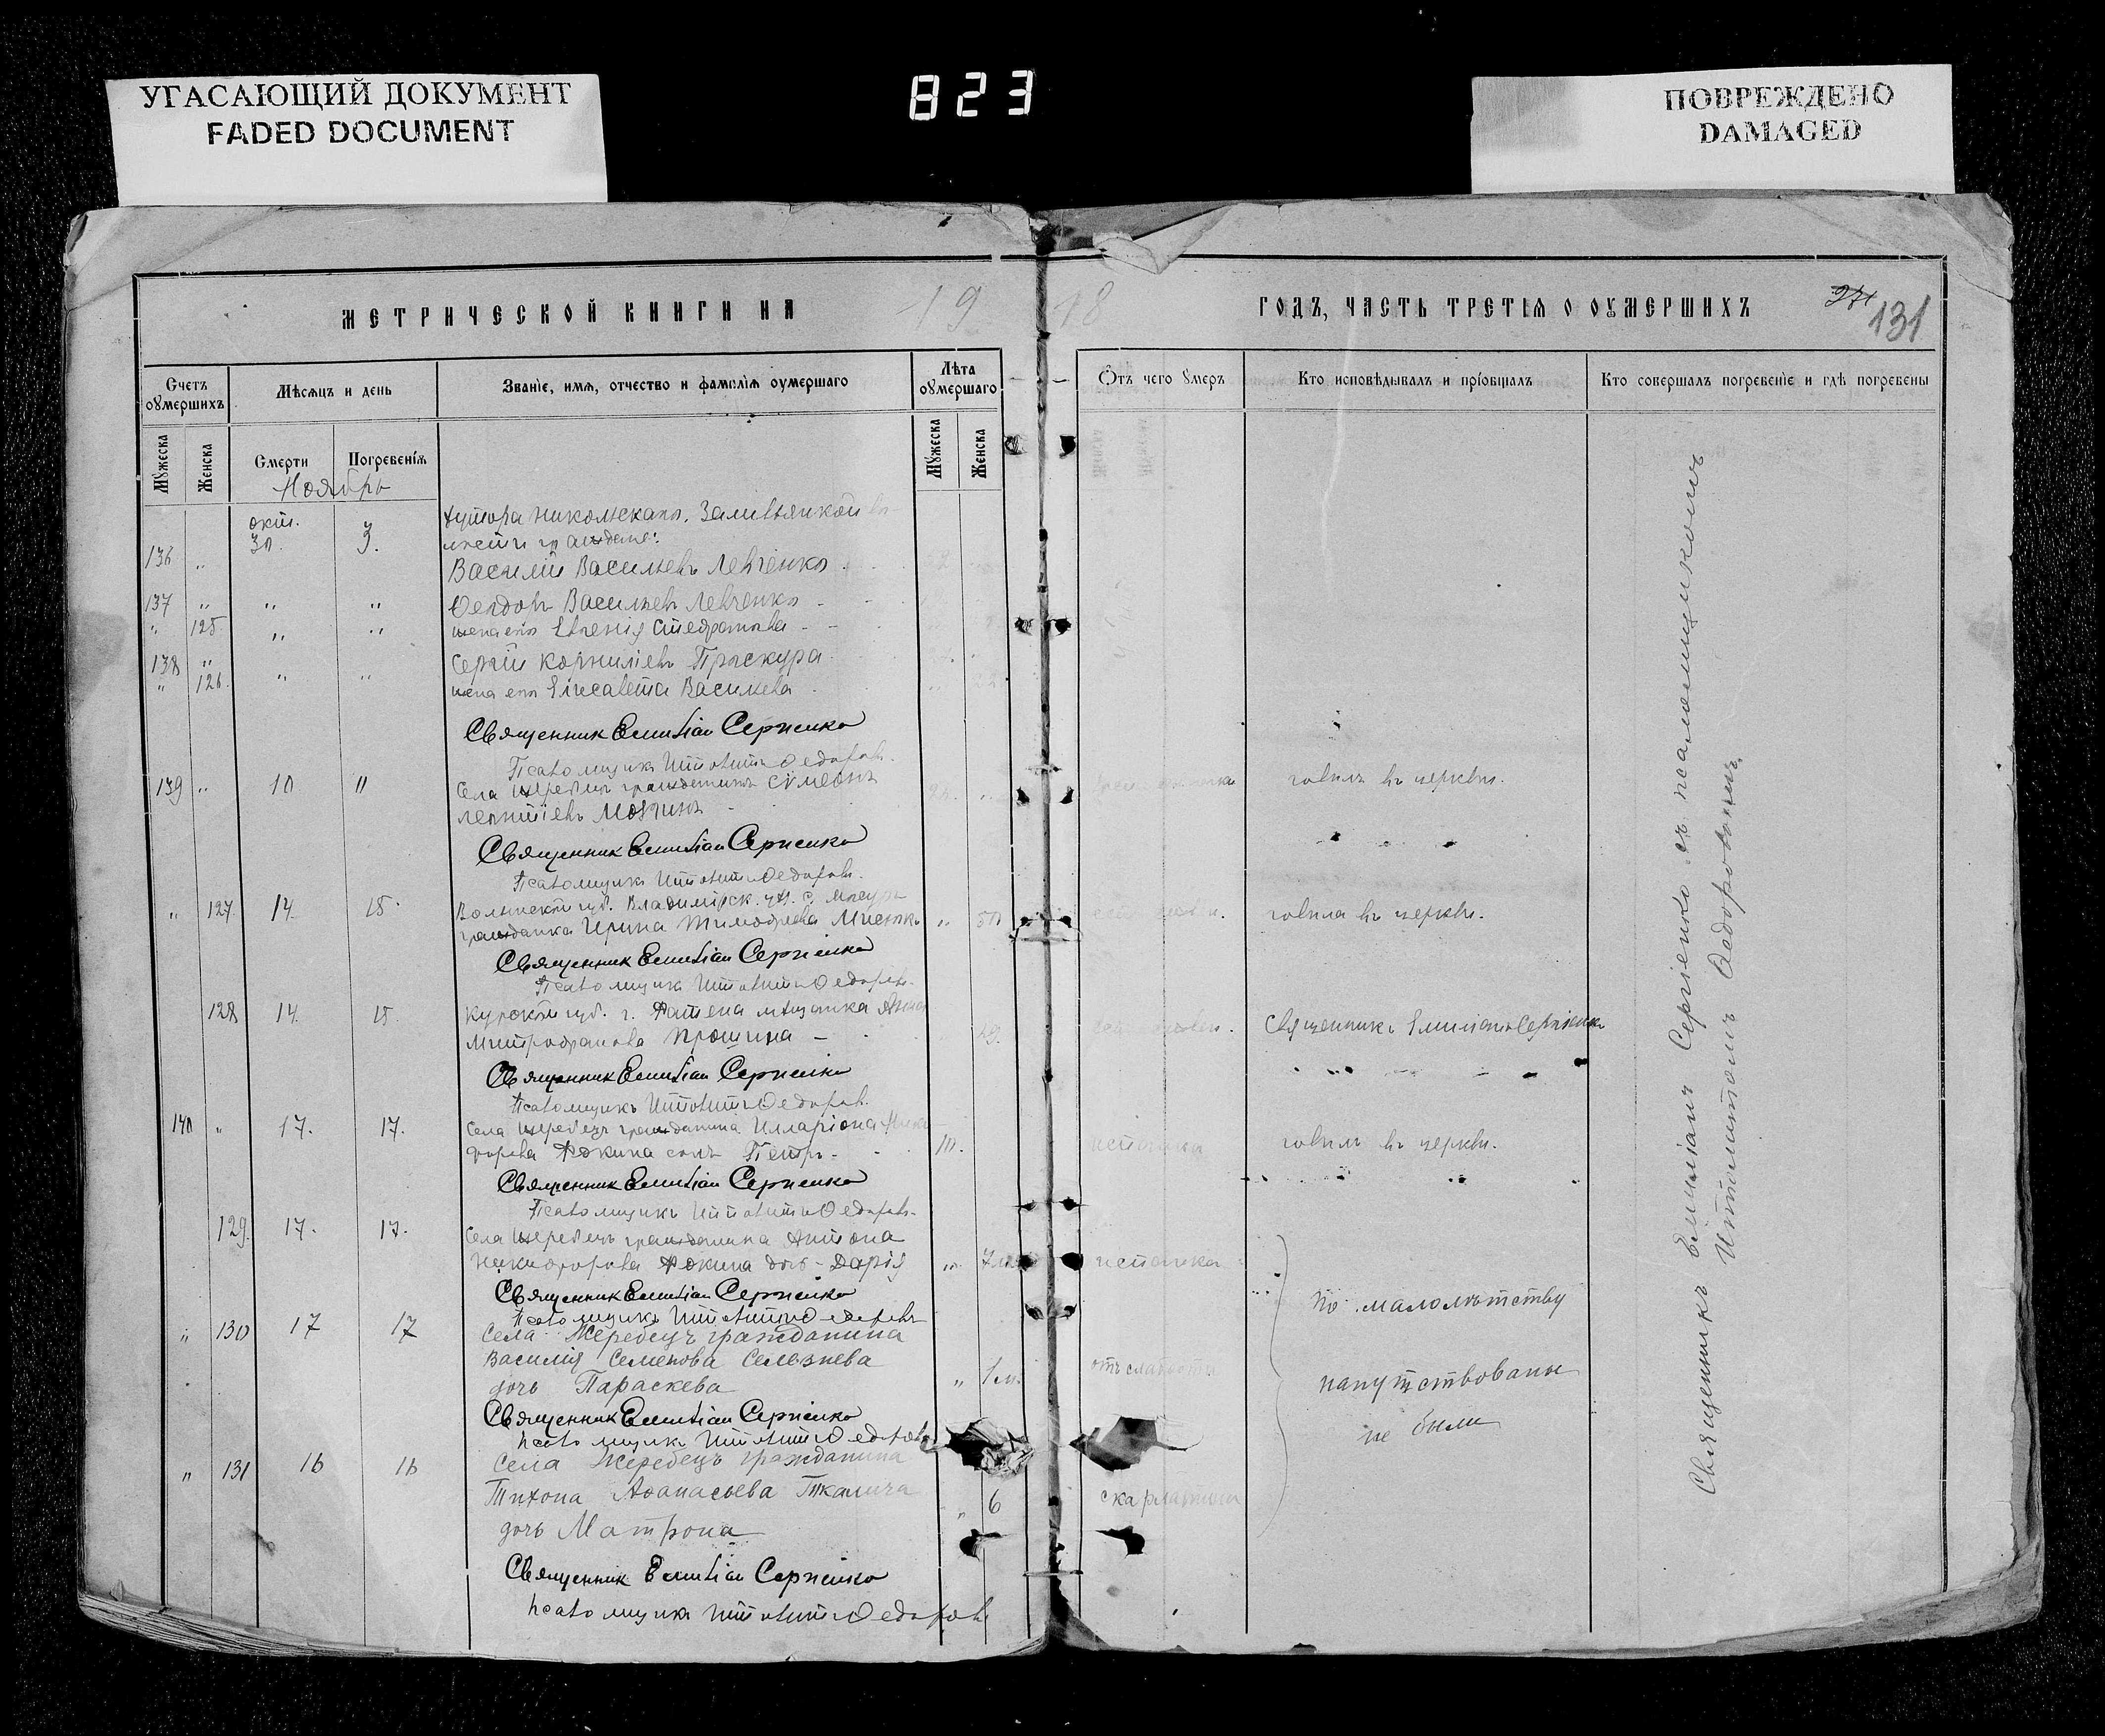 УГАСАЮЩИЙ ДОКУМЕНТ
FADED DOCUMENT
823
ПОВРЕЖДЕНО
DAMAGED
МЕТРИЧЕСКОЙ КНИГИ НА 19
18 ГОДЪ, ЧАСТЬ ТРЕТІЯ О ОУМЕРШИХЪ
131
Счетъ оумершихъ
Мѣсяцъ и день
Званіе, имя, отчество и фамилія оумершаго
Лѣта оумершаго
Отъ чего умеръ
Кто исповѣдывалъ и пріобщалъ
Кто совершалъ погребеніе и гдѣ погребены
Мужеска
Женска
Смерти
Погребенія
Мужеска
Женска
Ноябрь
хутора Никольскаго,
окт.
30. 3.
136 "
Василій Васильевъ Левченко
137 " " " Ѳеодоръ Васильевъ Левченко
" 125 " " жена его Евгенія
138 " Сергій Корниліевъ Проскура
" 126 " " жена его Елисавета Васильева
Священник Емилiан Сергиенко
Псаломщикъ Ипполитъ Ѳедоровъ
139 " 10 11 Села Жеребецъ гражданинъ Сѵмеонъ
Леонтіевъ
говилъ въ церкви.
Священник Емилiан Сергиенко
Псаломщикъ Ипполитъ Ѳедоровъ
" 127 14 15 Волынской губ. Владимірск. уѣз. с.
гражданка Ирина Тимофеева " 50
говила въ церкви.
Священник Емилiан Сергиенко
Псаломщикъ Ипполитъ Ѳедоровъ
128 14 15 Курской губ. г. Фатежа мѣщанка Анна
Митрофанова Прошина 29
Священникъ Емиліанъ Сергіенко
Священник Емилiан Сергиенко
Псаломщикъ Ипполитъ Ѳедоровъ
140 " 17. 17. Села Жеребецъ гражданина Илларіона
Фокина сынъ Петръ 10.
говилъ въ церкви.
Священник Емилiан Сергиенко
Псаломщикъ Ипполитъ Ѳедоровъ
129 17. 17. Села Жеребецъ гражданина Антона
Никифорова Фокина дочь Дарія " 7
испанка
Священник Емилiан Сергиенко
Псаломщикъ Ипполитъ Ѳедоровъ
" 130 17 17 Села Жеребецъ гражданина
Василія Семенова Селезнева
дочь Параскева " 1 м.
отъ слабости
по малолѣтству
напутствованы
не были
Священник Емилiан Сергиенко
Псаломщикъ Ипполитъ Ѳедоровъ
" 131 16 16 Села Жеребецъ гражданина
Тихона Аѳанасьева Ткалича
дочь Матрона " 6
скарлатина
Священник Емилiан Сергиенко
Псаломщикъ Ипполитъ Ѳедоровъ
Священникъ Емиліанъ Сергіенко съ псаломщикомъ
Ипполитомъ Ѳедоровымъ